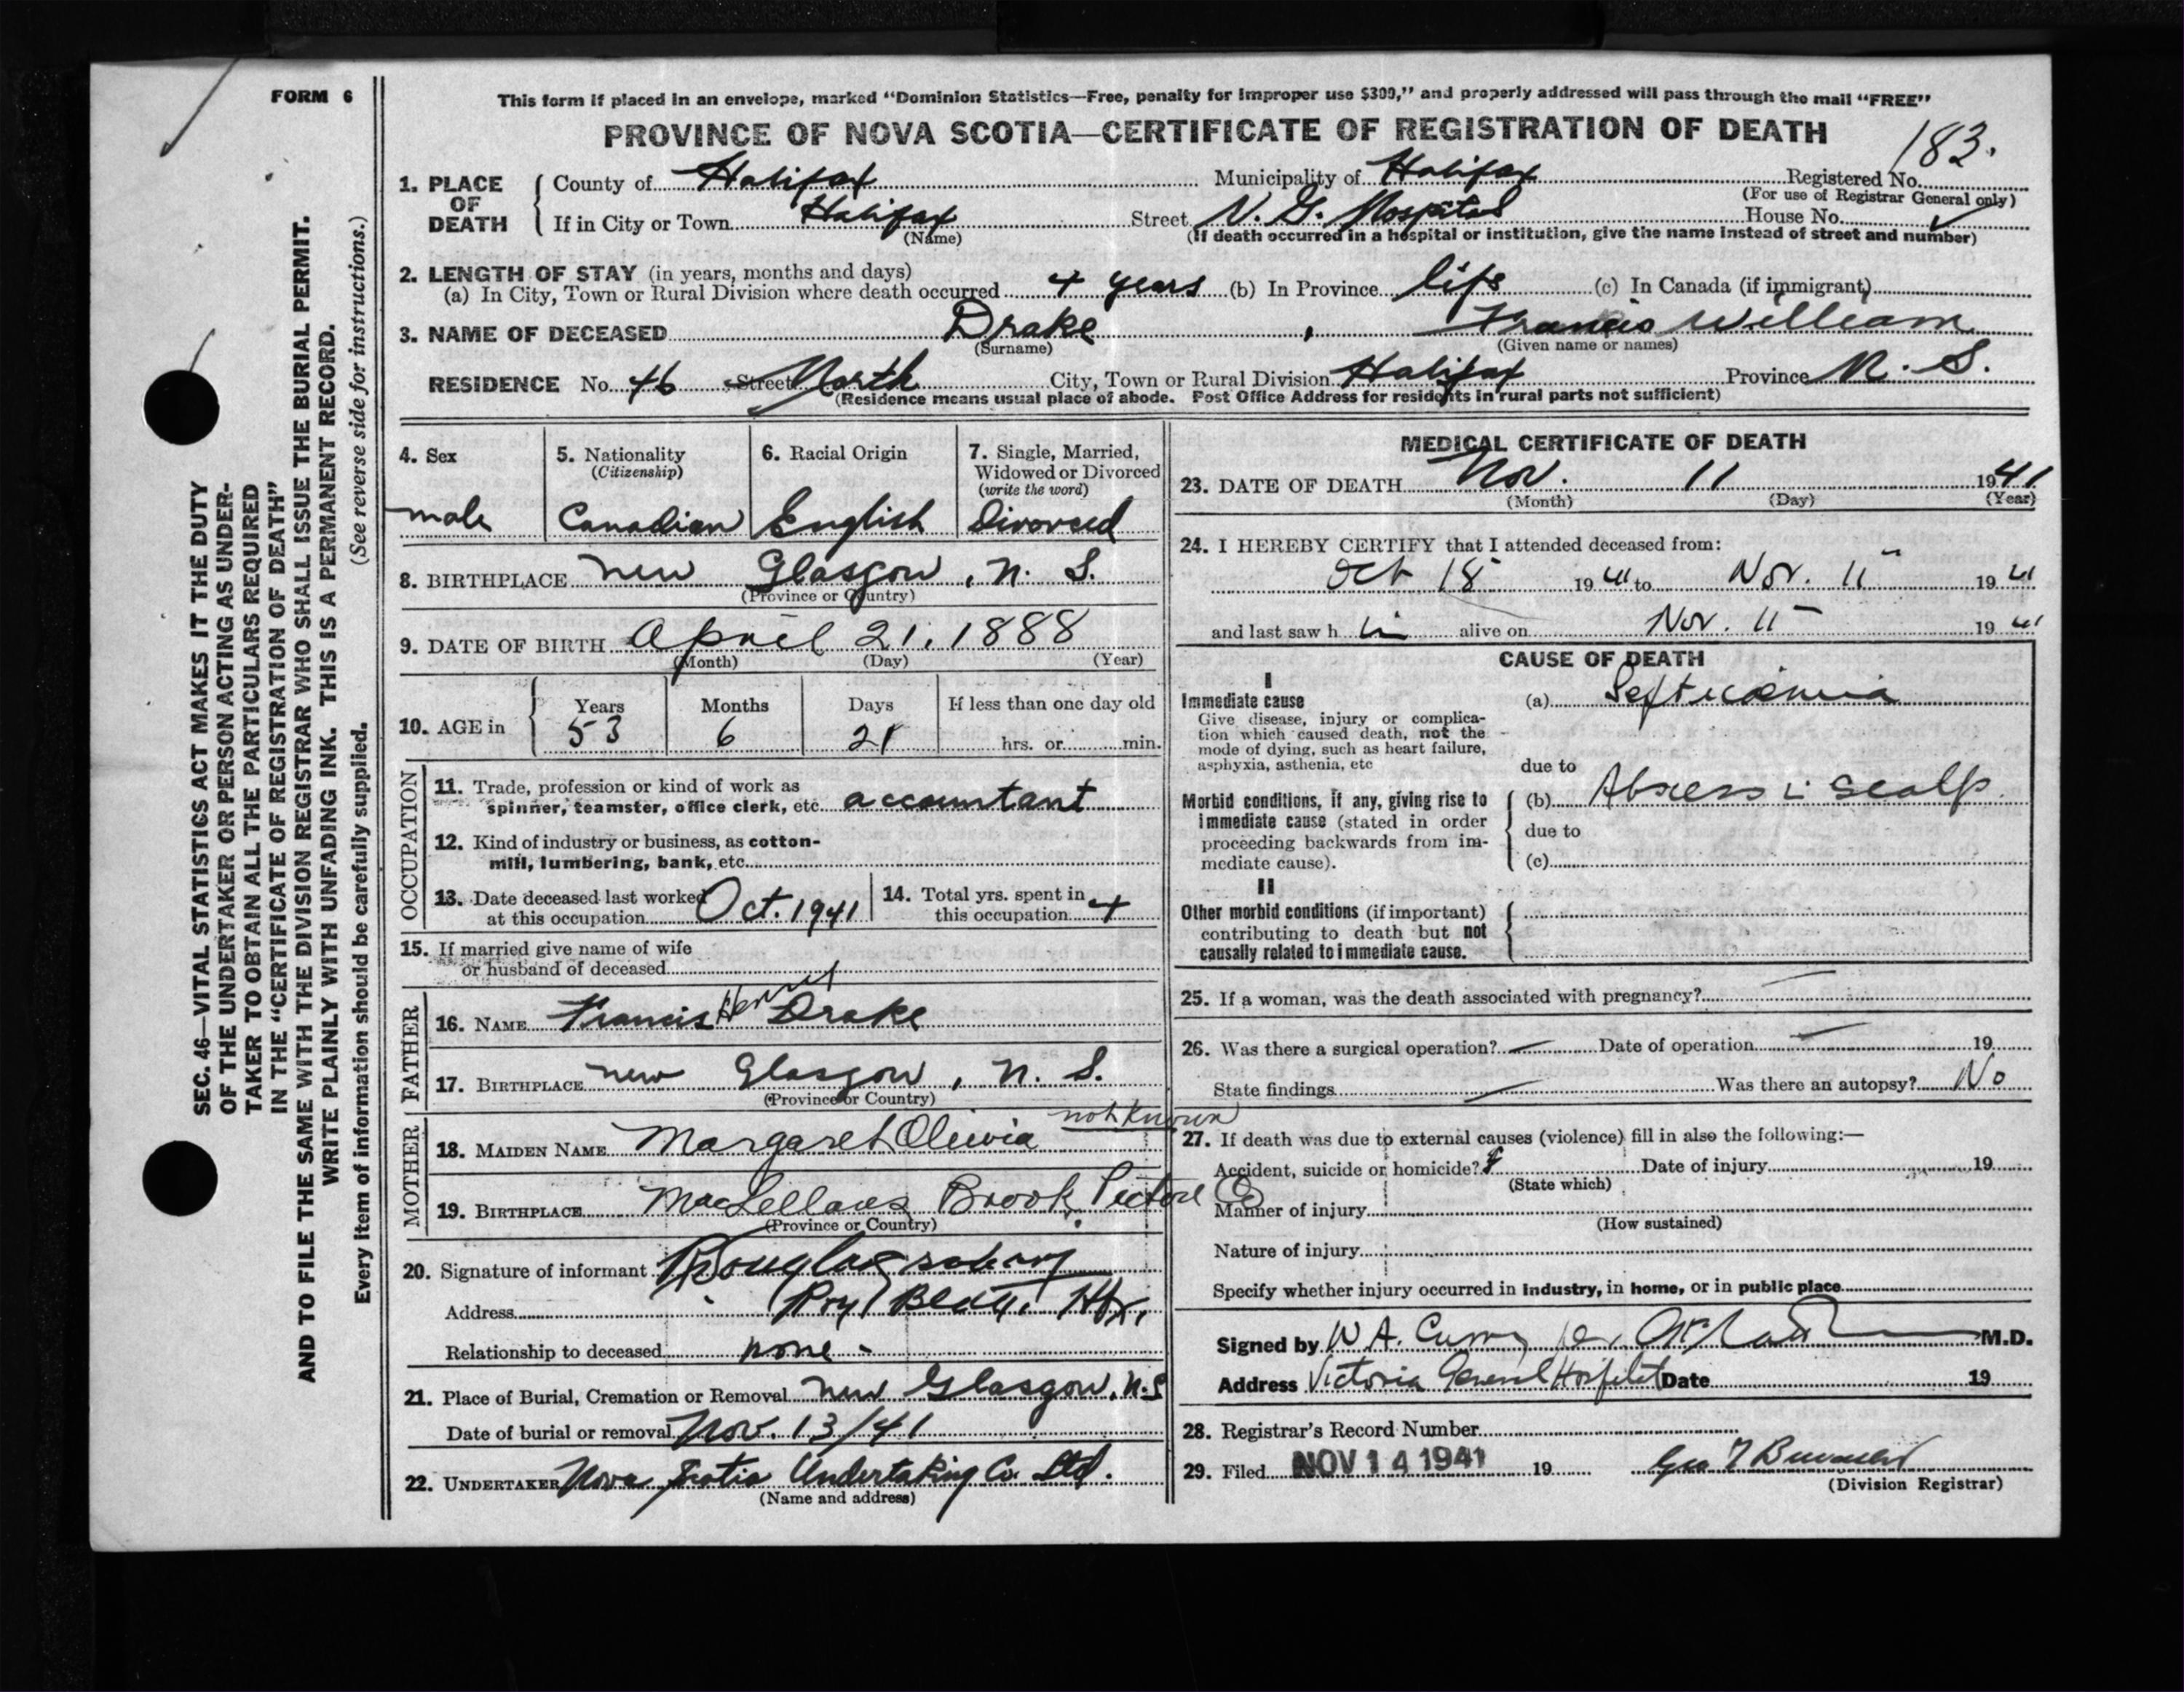 FORM 6
This form if placed in an envelope, marked “Dominion Statistics—Free, penalty for improper use $300,” and properly addressed will pass through the mail “FREE”
PROVINCE OF NOVA SCOTIA—CERTIFICATE OF REGISTRATION OF DEATH
183.
1. PLACE OF DEATH County of Halifax Municipality of Halifax Registered No.
(For use of Registrar General only)
If in City or Town Halifax Street V. G. Hospital House No.
(Name) (If death occurred in a hospital or institution, give the name instead of street and number)
2. LENGTH OF STAY (in years, months and days)
(a) In City, Town or Rural Division where death occurred 4 years (b) In Province life (c) In Canada (if immigrant)
3. NAME OF DECEASED Drake, Francis William
(Surname) (Given name or names)
RESIDENCE No. 46 Street North City, Town or Rural Division Halifax Province N. S.
(Residence means usual place of abode. Post Office Address for residents in rural parts not sufficient)
4. Sex male
5. Nationality (Citizenship) Canadian
6. Racial Origin English
7. Single, Married, Widowed or Divorced (write the word) Divorced
8. BIRTHPLACE New Glasgow, N. S.
(Province or Country)
9. DATE OF BIRTH April 21, 1888
(Month) (Day) (Year)
10. AGE in Years 53 Months 6 Days 21 If less than one day old hrs. or min.
OCCUPATION
11. Trade, profession or kind of work as
spinner, teamster, office clerk, etc. accountant
12. Kind of industry or business, as cotton-
mill, lumbering, bank, etc.
13. Date deceased last worked
at this occupation Oct. 1941
14. Total yrs. spent in
this occupation 4
15. If married give name of wife
or husband of deceased
FATHER
16. NAME Francis Drake
17. BIRTHPLACE New Glasgow, N. S.
(Province or Country)
MOTHER
18. MAIDEN NAME Margaret Olivia not known
19. BIRTHPLACE MacLellans Brook, Pictou Co
(Province or Country)
20. Signature of informant
Address Roy Bldg. Hfx.
Relationship to deceased none -
21. Place of Burial, Cremation or Removal New Glasgow, N.S
Date of burial or removal Nov. 13/41
22. UNDERTAKER Nova Scotia Undertaking Co. Ltd.
(Name and address)
MEDICAL CERTIFICATE OF DEATH
23. DATE OF DEATH Nov. 11 1941
(Month) (Day) (Year)
24. I HEREBY CERTIFY that I attended deceased from:
Oct 18 1941 to Nov. 11 1941
and last saw h im alive on Nov. 11 1941
CAUSE OF DEATH
I
Immediate cause (a) Septicaemia
Give disease, injury or complica-
tion which caused death, not the
mode of dying, such as heart failure,
asphyxia, asthenia, etc
due to
Morbid conditions, if any, giving rise to (b) Abscess scalp.
immediate cause (stated in order due to
proceeding backwards from im-
mediate cause). (c)
II
Other morbid conditions (if important)
contributing to death but not
causally related to immediate cause.
25. If a woman, was the death associated with pregnancy? —
26. Was there a surgical operation? — Date of operation — 19
State findings — Was there an autopsy? No
27. If death was due to external causes (violence) fill in also the following:—
Accident, suicide or homicide? Date of injury 19
(State which)
Manner of injury
(How sustained)
Nature of injury
Specify whether injury occurred in industry, in home, or in public place
Signed by W A. Curry per M.D.
Address Victoria General Hospital Date 19
28. Registrar's Record Number
29. Filed NOV 14 1941 19
(Division Registrar)
SEC. 46—VITAL STATISTICS ACT MAKES IT THE DUTY
OF THE UNDERTAKER OR PERSON ACTING AS UNDER-
TAKER TO OBTAIN ALL THE PARTICULARS REQUIRED
IN THE “CERTIFICATE OF REGISTRATION OF DEATH”
AND TO FILE THE SAME WITH THE DIVISION REGISTRAR WHO SHALL ISSUE THE BURIAL PERMIT.
WRITE PLAINLY WITH UNFADING INK. THIS IS A PERMANENT RECORD.
Every item of information should be carefully supplied. (See reverse side for instructions.)